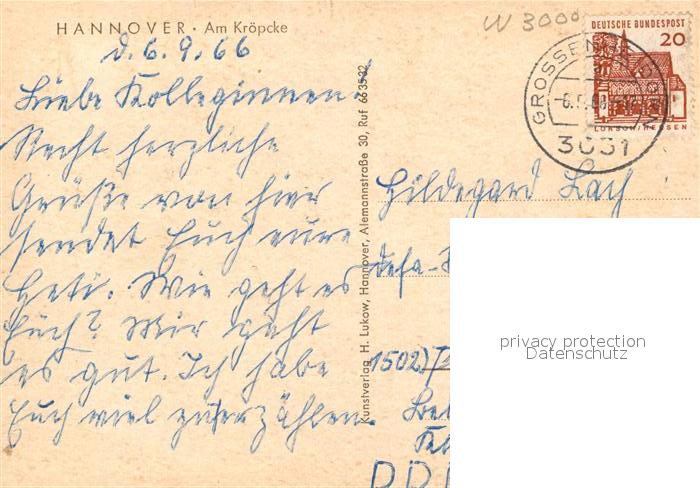 HANNOVER · Am Kröpcke
d. 6. 9. 66
Liebe Kolleginnen.
Recht herzliche
Grüße von hier
sendet Euch eure
Heti. Wie geht es
Euch? Mir geht
es gut. Ich habe
Euch viel zu erzählen.
Kunstverlag H. Lukow, Hannover, Alemannstraße 30, Ruf 663532
W 3000
DEUTSCHE BUNDESPOST
20
LORSCH/HESSEN
3031
Hildegard Lach
defa-
1502)
DD
privacy protection
Datenschutz